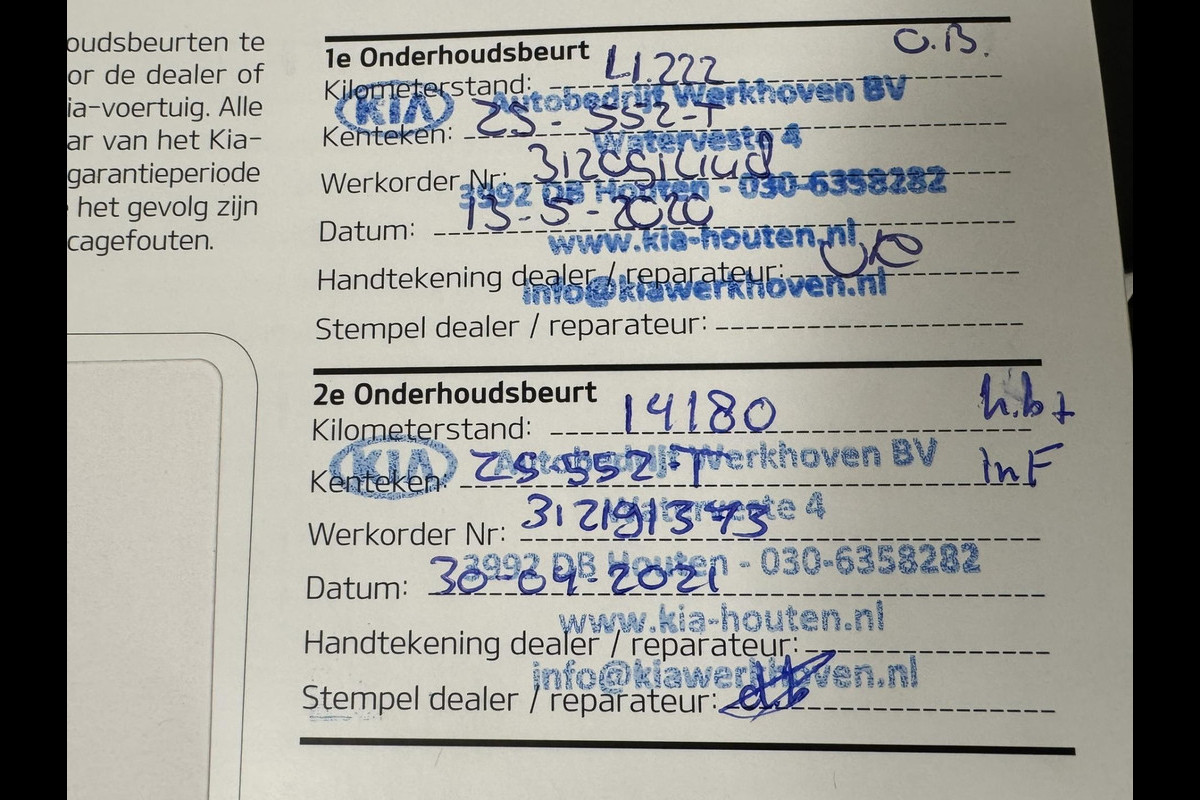 oudsbeurten te
or de dealer of
ia-voertuig. Alle
ar van het Kia-
garantieperiode
het gevolg zijn
cagefouten.
1e Onderhoudsbeurt O.B.
Kilometerstand:
KIA Autobedrijf Werkhoven BV
Kenteken: ZS-552-T
Waterveste 4
Werkorder Nr:
3992 DB Houten - 030-6358282
Datum: 13-5-2020
www.kia-houten.nl
Handtekening dealer / reparateur:
info@kiawerkhoven.nl
Stempel dealer / reparateur:
2e Onderhoudsbeurt h.b +
Kilometerstand: 14180
KIA Autobedrijf Werkhoven BV
Kenteken: ZS-552-T inF
Waterveste 4
Werkorder Nr:
3992 DB Houten - 030-6358282
Datum: 30-04-2021
www.kia-houten.nl
Handtekening dealer / reparateur:
info@kiawerkhoven.nl
Stempel dealer / reparateur: